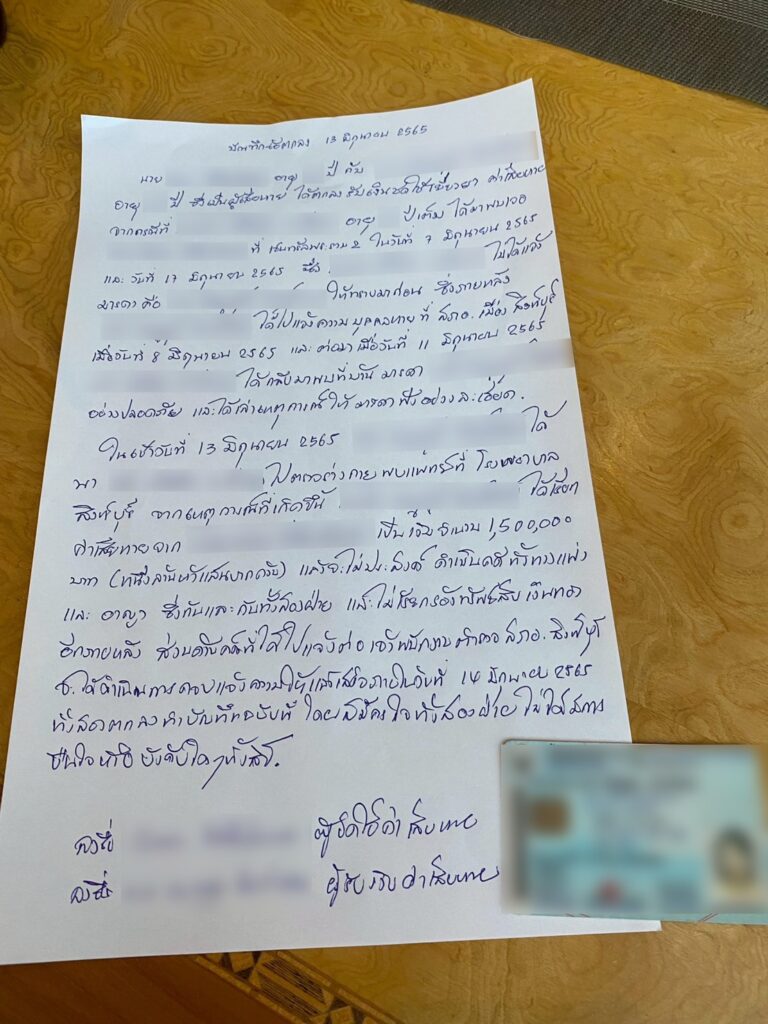 บันทึกข้อตกลง 13 มิถุนายน 2565
นาย อายุ ปี กับ
อายุ ปี ซึ่งเป็นผู้เสียหาย ได้ตกลงรับเงินชดใช้เยียวยา ค่าเสียหาย
จากกรณีที่ อายุ ปีเต็ม ได้มาพบเจอ
ที่ พระราม 2 ในวันที่ 7 มิถุนายน 2565
และ วันที่ 17 มิถุนายน 2565 ซึ่ง ไม่ได้แจ้ง
มารดา คือ ให้ทราบมาก่อน ซึ่งภายหลัง
ได้ไปแจ้งความ บุคคลหาย ที่ สภอ. เมือง สิงห์บุรี
เมื่อวันที่ 8 มิถุนายน 2565 และ ต่อมา เมื่อวันที่ 11 มิถุนายน 2565
ได้กลับมาพบที่บ้าน มารดา
อย่างปลอดภัย และได้เล่าเหตุการณ์ ให้ มารดา ฟังอย่างละเอียด.
ในเช้าวันที่ 13 มิถุนายน 2565 ได้
พา ไปตรวจร่างกาย พบแพทย์ที่ โรงพยาบาล
สิงห์บุรี จากเหตุการณ์ที่เกิดขึ้น ได้เรียก
ค่าเสียหายจาก เป็นเงินจำนวน 1,500,000
บาท (หนึ่งล้านห้าแสนบาท) และจะไม่ประสงค์ ดำเนินคดี ทั้งทางแพ่ง
และ อาญา ซึ่งกันและกันทั้งสองฝ่าย และไม่เรียกร้องทรัพย์สิน เงินทอง
อีกภายหลัง ส่วนคดีที่ได้ไปแจ้งต่อ เจ้าพนักงาน ตำรวจ สภอ. สิงห์บุรี
จะได้ดำเนินการถอนแจ้งความให้แล้วเสร็จภายในวันที่ 14 มิถุนายน 2565
ทั้งสอง ตกลงทำบันทึกฉบับนี้ โดยสมัครใจ ทั้งสองฝ่าย ไม่ได้มีการ
ขืนใจ หรือ บังคับใดๆ ทั้งสิ้น.
ลงชื่อ ผู้ชดใช้ค่าเสียหาย
ลงชื่อ ผู้รับเงินค่าเสียหาย